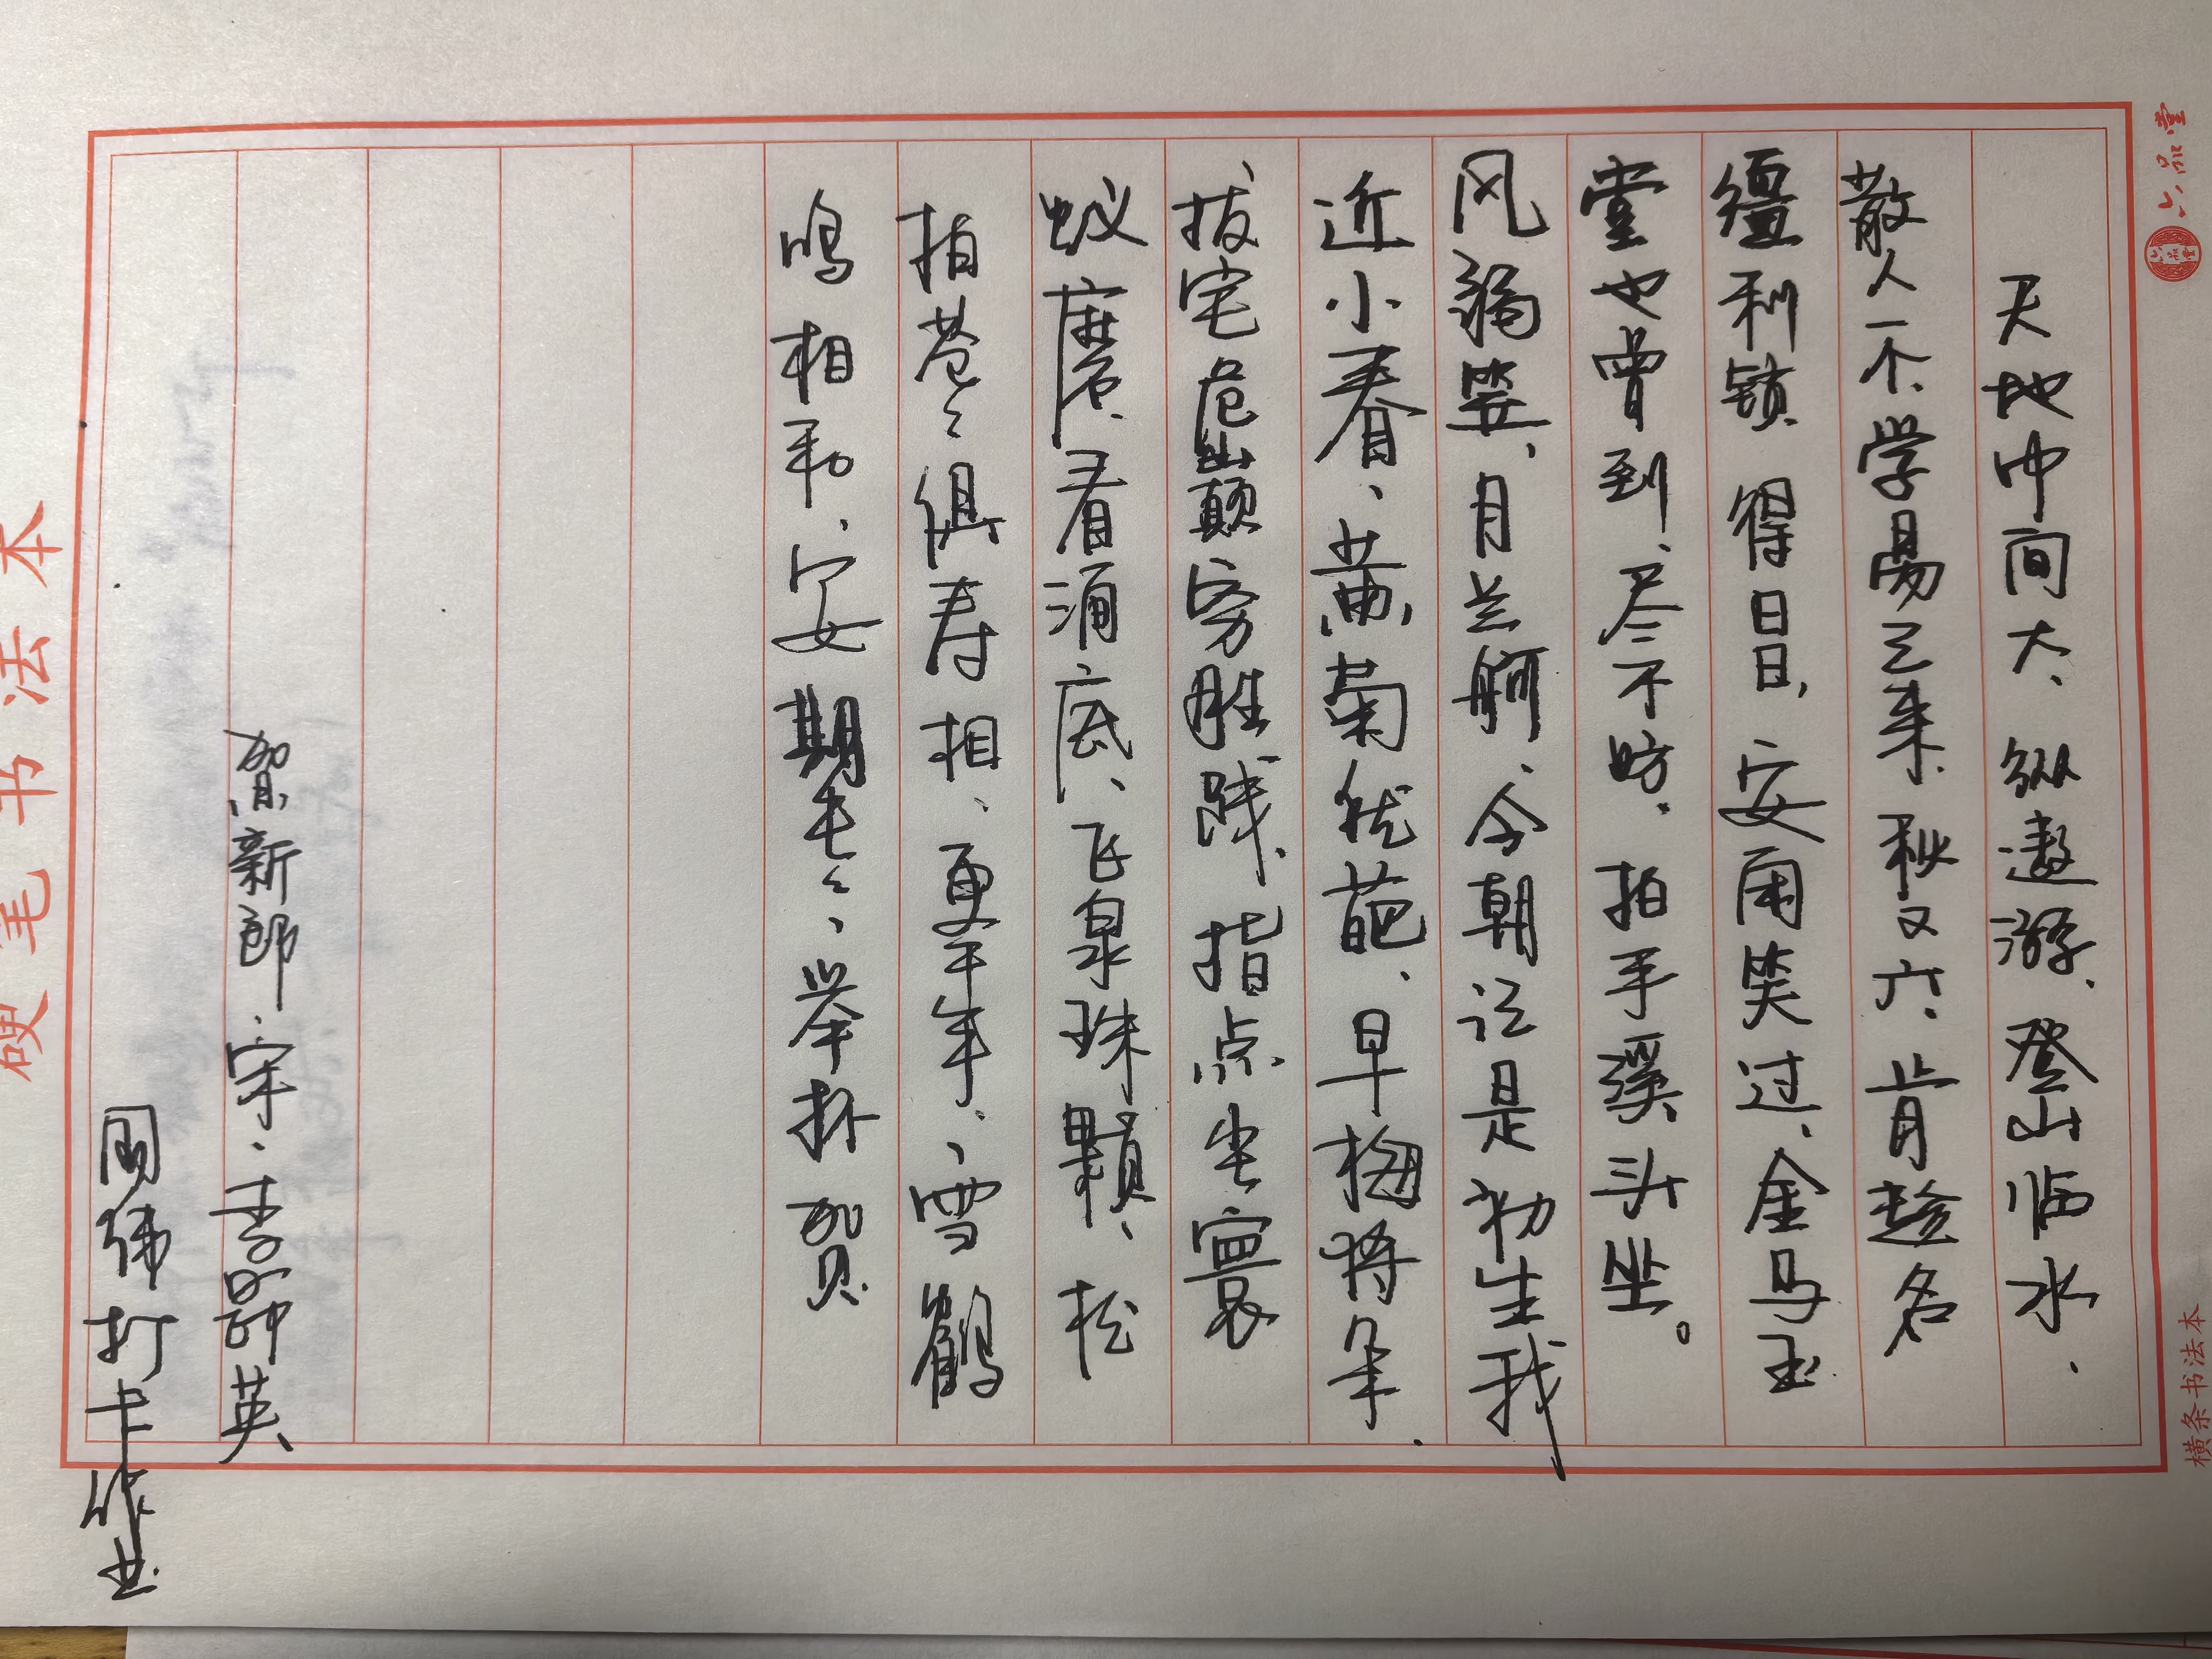 天地中间大、纵遨游、登山临水、
散人一个、学易已来秋又六、肯趁名
缰利锁、得日日、安闲笑过、金马玉
堂也曾到、尽不妨、拍手溪头坐。
风弱、月兰舸、今朝记是初生我
近小春、黄菊犹葩、早梅将朵、
拔宅危巅穷胜践、指点尘寰
蚁磨、看涌底、飞泉珠颗、松
柏苍々俱寿相、更年年、雪鹤
鸣相和、安期老々、举杯贺
贺新郎·宋·李昴英
周伟打卡作业
硬笔书法本
六品堂
六品堂
横条书法本